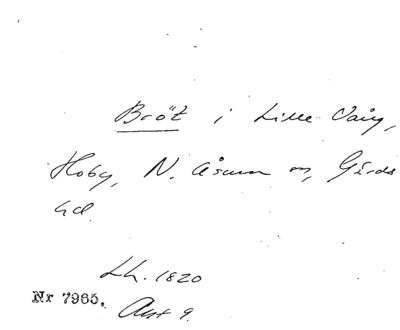 Bröt i Lille Vång,
Hoby, N. Åsum m, Gärds
hd.
Lh. 1820
Nr 7965. Akt 9.